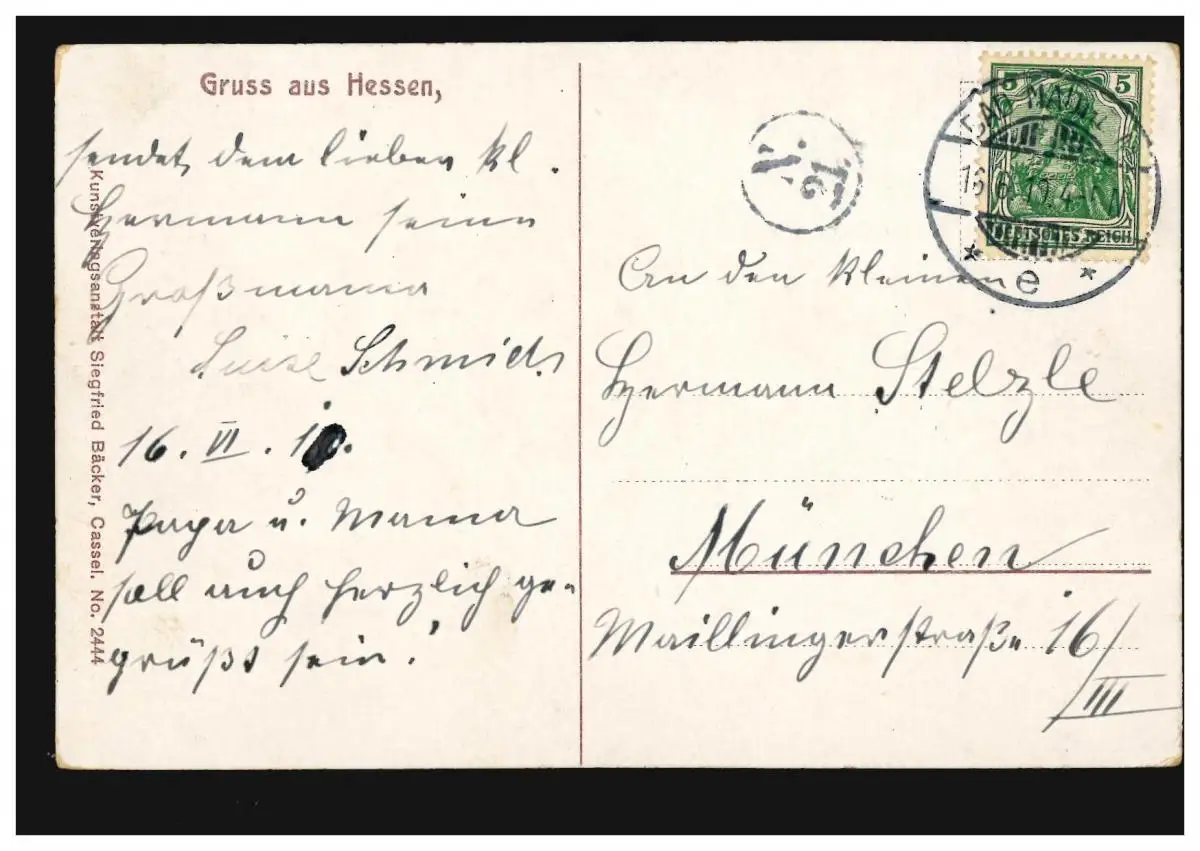 Gruss aus Hessen,
sendet dem lieben kl.
Hermann seine
Großmama
Luise Schmid.
16. VI. 10.
Papa u. Mama
soll auch herzlich ge-
grüßt sein.
Kunstverlagsanstalt Siegfried Bäcker, Cassel. No. 2444
N.
21.
5 5
DEUTSCHES REICH
BAD NAUH
16.6.10.4
* e *
An den kleinen
Hermann Stelzle
München
Maillingerstraße 16/
III